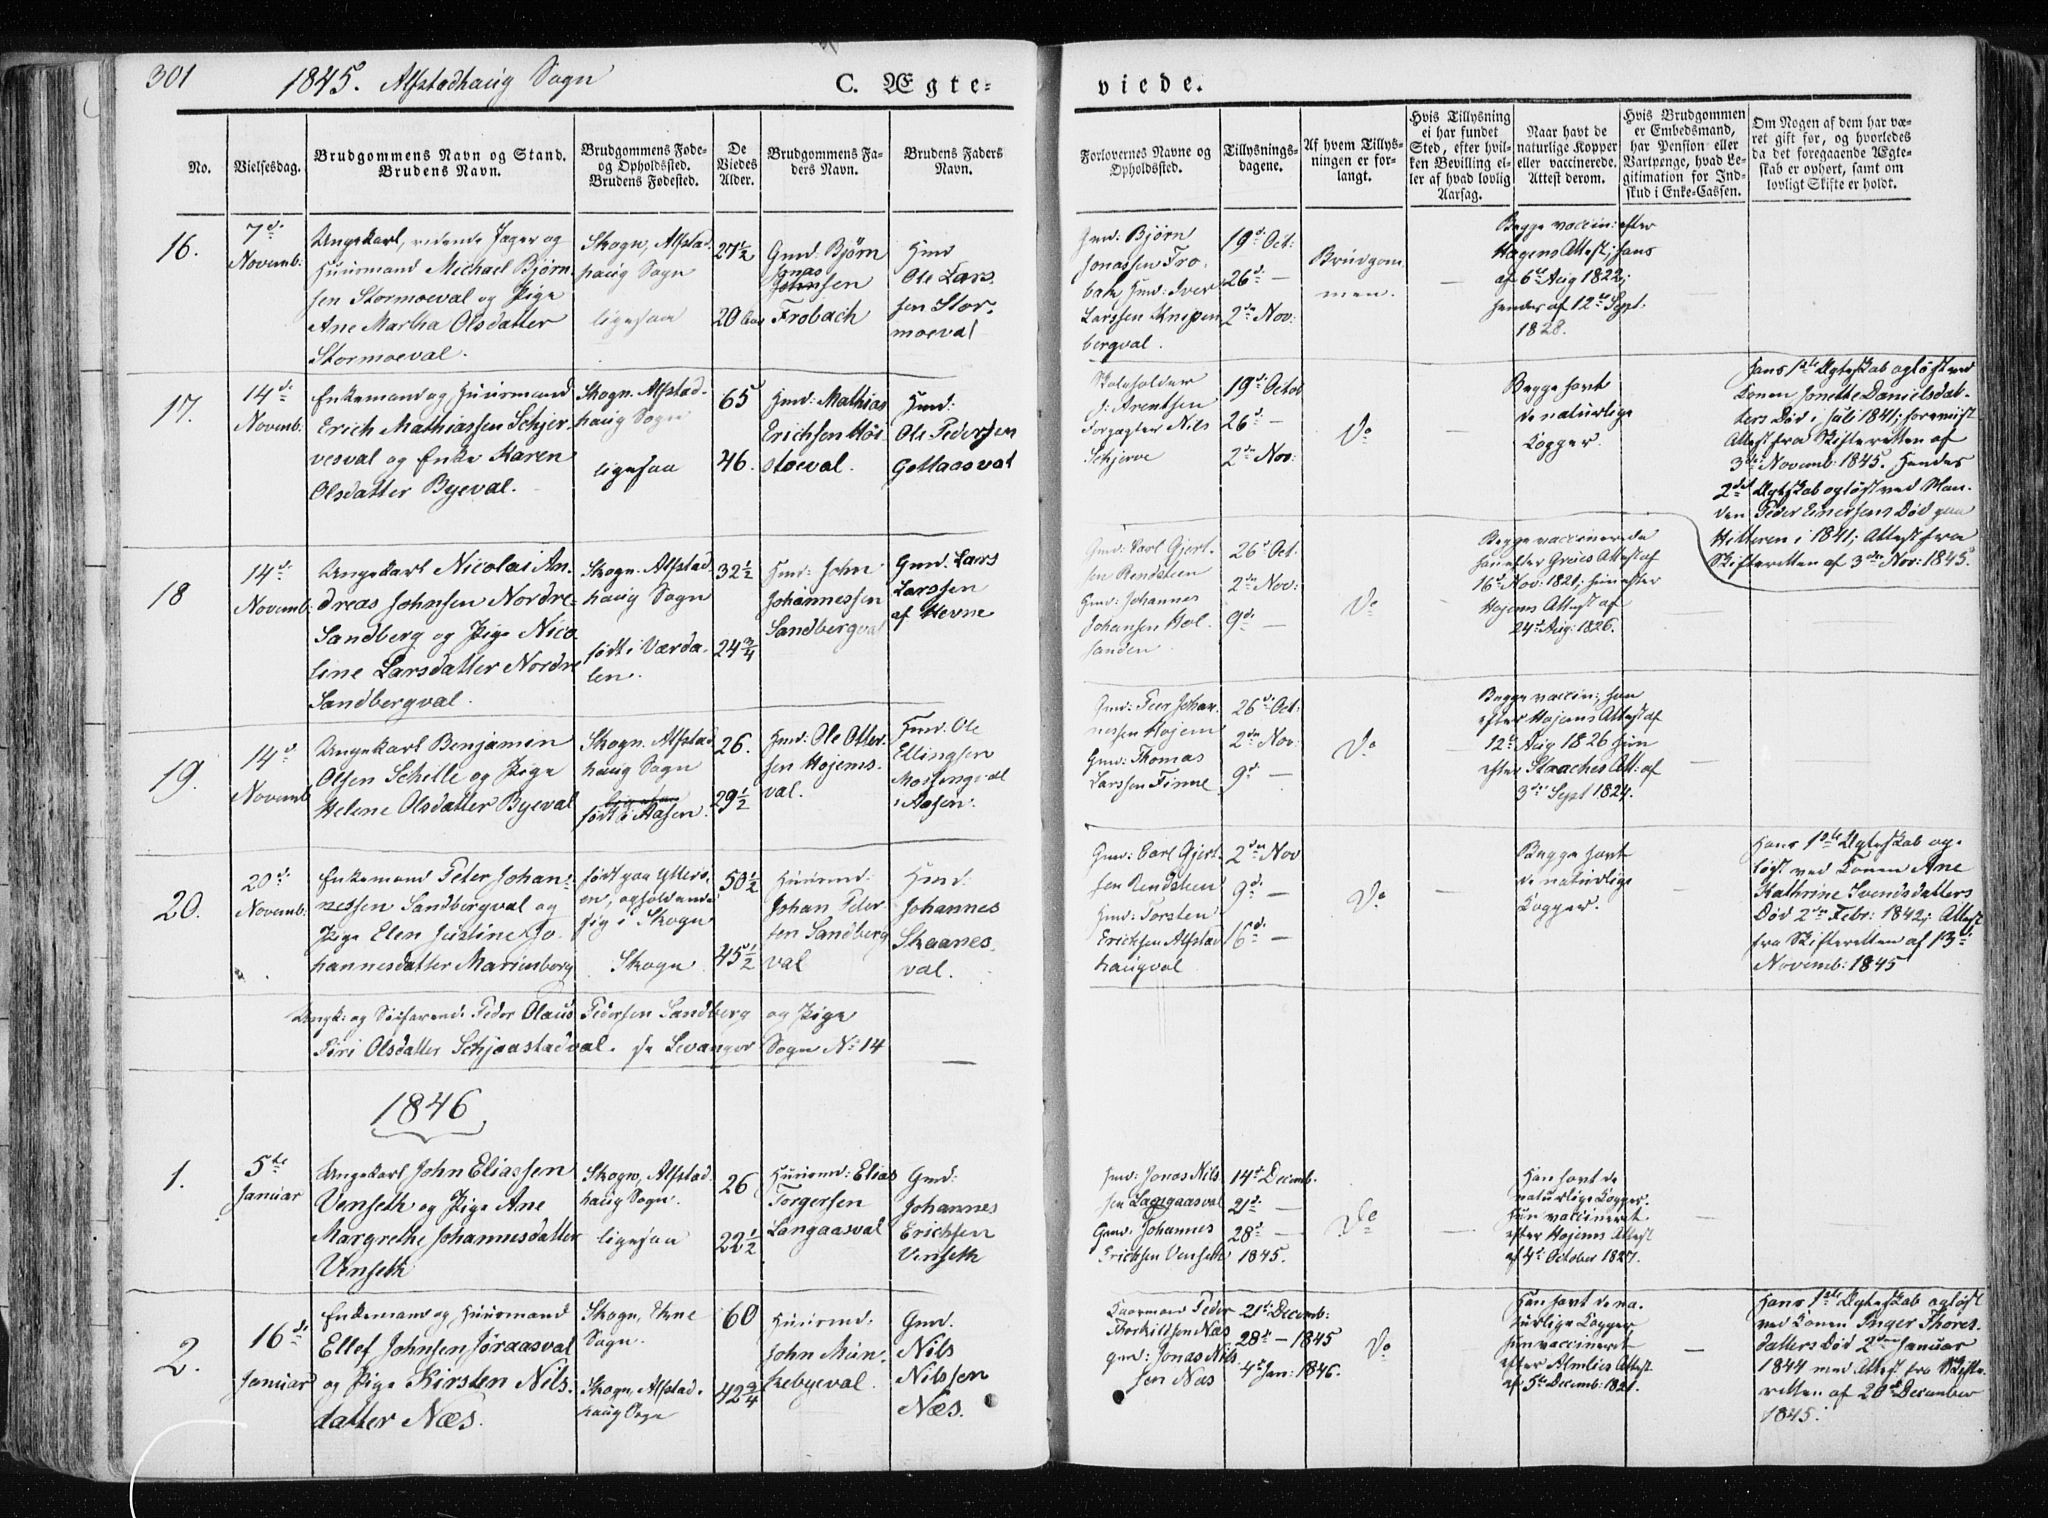 301
1845. Alstadhaug Sogn
C. Ægte-
viede.
No.
Vielsesdag.
Brudgommens Navn og Stand.
Brudens Navn.
Brudgommens Føde-
og Opholdssted.
Brudens Fødested.
De
Viedes
Alder.
Brudgommens Fa-
ders Navn.
Brudens Faders
Navn.
Forlovernes Navne og
Opholdssted.
Tillysnings-
dagene.
Af hvem Tillys-
ningen er for-
langt.
Hvis Tillysning
ei har fundet
Sted, efter hvil-
ken Bevilling el-
ler af hvad lovlig
Aarsag.
Naar havt de
naturlige Kopper
eller vaccinerede.
Attest derom.
Hvis Brudgommen
er Embedsmand,
har Pension eller
Vartpenge, hvad Le-
gitimation for Ind-
skud i Enke-Cassen.
Om Nogen af dem har væ-
ret gift før, og hvorledes
da det foregaaende Ægte-
skab er ophørt, samt om
lovligt Skifte er holdt.
16.
7de
Novemb.
Ungekarl, ridende Jæger og
Huusmand Michael Bjørn
sen Stormoeval og Pige
Ane Martha Olsdatter
Stormoeval.
Skogn, Alstad
haug Sogn
ligesaa
27 1/2
20
Gmd: Bjørn
Jonas
Johnsen
Frobach
Hmd
Ole Lars
sen Stor-
moeval
Gmd: Bjørn
Jonassen Fro
bak Hmd: Iver
Larssen Knipen
bergval.
19de Oct:
26de —
2den Nov:
Brudgom
men.
—
Begge vaccin: efter
Hagens Attest, hans
af 6te Aug 1822;
hendes af 12te Sept:
1828.
—
17.
14de
Novemb.
Enkemand og Huusmand
Erich Mathiassen Schjer-
vesval og Enke Karen
Olsdatter Byeval.
Skogn. Alstad-
haug Sogn
ligesaa
65
46.
Hmd: Mathias
Erichsen Høi
stoeval.
Hmd:
Ole Pedersen
Gottaasval
Skoleholder
J: Arentsen
Forpagter Nils
Schjerve
19de Octob
26de —
2den Nov:
Do
—
Begge havt
de naturlige
Kopper.
Hans 1ste Ægteskab opløst ved
Konen Jonette Danielsdat-
ters Død i Juli 1841; forevist
Attest fra Skifteretten af
3die Novemb: 1845. Hendes
2det Ægteskab opløst ved Man-
den Peder Einersens Død paa
Hitteren i 1841; Attest fra
Skifteretten af 3die Nov: 1845.
18
14de
Novemb:
Ungekarl Nicolai An-
dreas Johnsen Nordre-
Sandberg og Pige Nico
line Larsdatter Nordre
Sandbergval.
Skogn. Alstad
haug Sogn
født i Værda-
len.
32 1/2
24 3/4
Hmd: John
Johannessen
Sandbergval
Gmd. Lars
Larssen
af Hevne
Gmd: Carl Gjert-
sen Rendsteen
Gmd: Johannes
Johansen Hol-
sanden
26de Oct:
2den Nov:
9de —
Do
Begge vaccinerede
han efter Greies Attest af
16de Nov: 1821; hun efter
Hojems Attest af
24de Aug: 1826.
—
19.
14de
Novemb
Ungekarl Benjamin
Olsen Schille og Pige
Helene Olsdatter Byeval
Skogn. Alstad
haug Sogn
ligesaa
født i Aasen.
26.
29 1/2
Hmd: Ole Otter-
sen Hojems-
val.
Hmd. Ole
Ellingsen
Mossingval
i Aasen.
Gmd: Peer Johan
nessen Hojem
Gmd: Thomas
Larssen Finne
26de Oct:
2den Nov:
9de —
Do
—
Begge vaccin; han
efter Hojems Attest af
12te Aug 1826 hun
efter Staaches Att: af
3die Sept 1824.
—
20.
20de
Novemb:
Enkemand Peter Johan-
nessen Sandbergval og
Pige Elen Justine Jo-
hannesdatter Marienborg
født paa Ytterø-
en, opholdende
sig i Skogn
Skogn
50 1/2
45 1/2
Huusmd:
Johan Peter
sen Sandberg
val
Hmd:
Johannes
Skaanes-
val.
Gmd: Carl Gjert-
sen Rendsteen
Hmd: Torsten
Erichsen Alstad
haugval
2den Nov
9de —
16de —
Do
—
Begge havt
de naturlige
Kopper.
—
Hans 1ste Ægteskab op-
løst ved Konen Ane
Kathrine Svendsdatters
Død 2den Febr: 1842; Attest
fra Skifteretten af 13de
Novemb: 1845
Ungk: og Søefarende Peder Olaus Pedersen Sandberg og Pige
Siri Olsdatter Schjaastadval. se Levanger Sogn No 14
—
1846
1.
5te
Januar
Ungekarl John Eliassen
Venseth og Pige Ane
Margrethe Johannesdatter
Venseth
Skogn, Alstad
haug Sogn.
ligesaa
26
22 1/2
Huusmd: Elias
Torgersen
Langaasval
Gmd:
Johannes
Erichsen
Venseth
Hmd: Jonas Nils
sen Langaasval
Gmd: Johannes
Erichsen Venseth
14de Decemb.
21de —
28de —
1845.
Do
—
Han havt de
naturlige Kopper.
Hun vaccineret
efter Hojems Attest
af 4de October 1827.
—
2.
16de
Januar
Enkemand og Huusmand
Ellef Johnsen Jøraasval
og Pige Kirsten Nils-
datter Næs.
Skogn, Ekne
Sogn.
Skogn, Alstad-
haug Sogn
60
42 3/4
Huusmd.
John Mun-
kebyeval.
Gmd.
Nils
Nilssen
Næs.
Kaarmand Peder
Thorkildsen Næs
Gmd: Jonas Nils
sen Næs
21de Decemb:
28de — 1845
4de Jan: 1846.
Do
—
Han havt de na-
turlige Kopper
hun vaccineret
efter Almlies Attest
af 5te Decemb: 1821.
—
Hans 1ste Ægteskab opløst
ved Konen Inger Thores-
datters Død 2den Januar
1844 med Attest fra Skifte
retten af 20de December
1845.